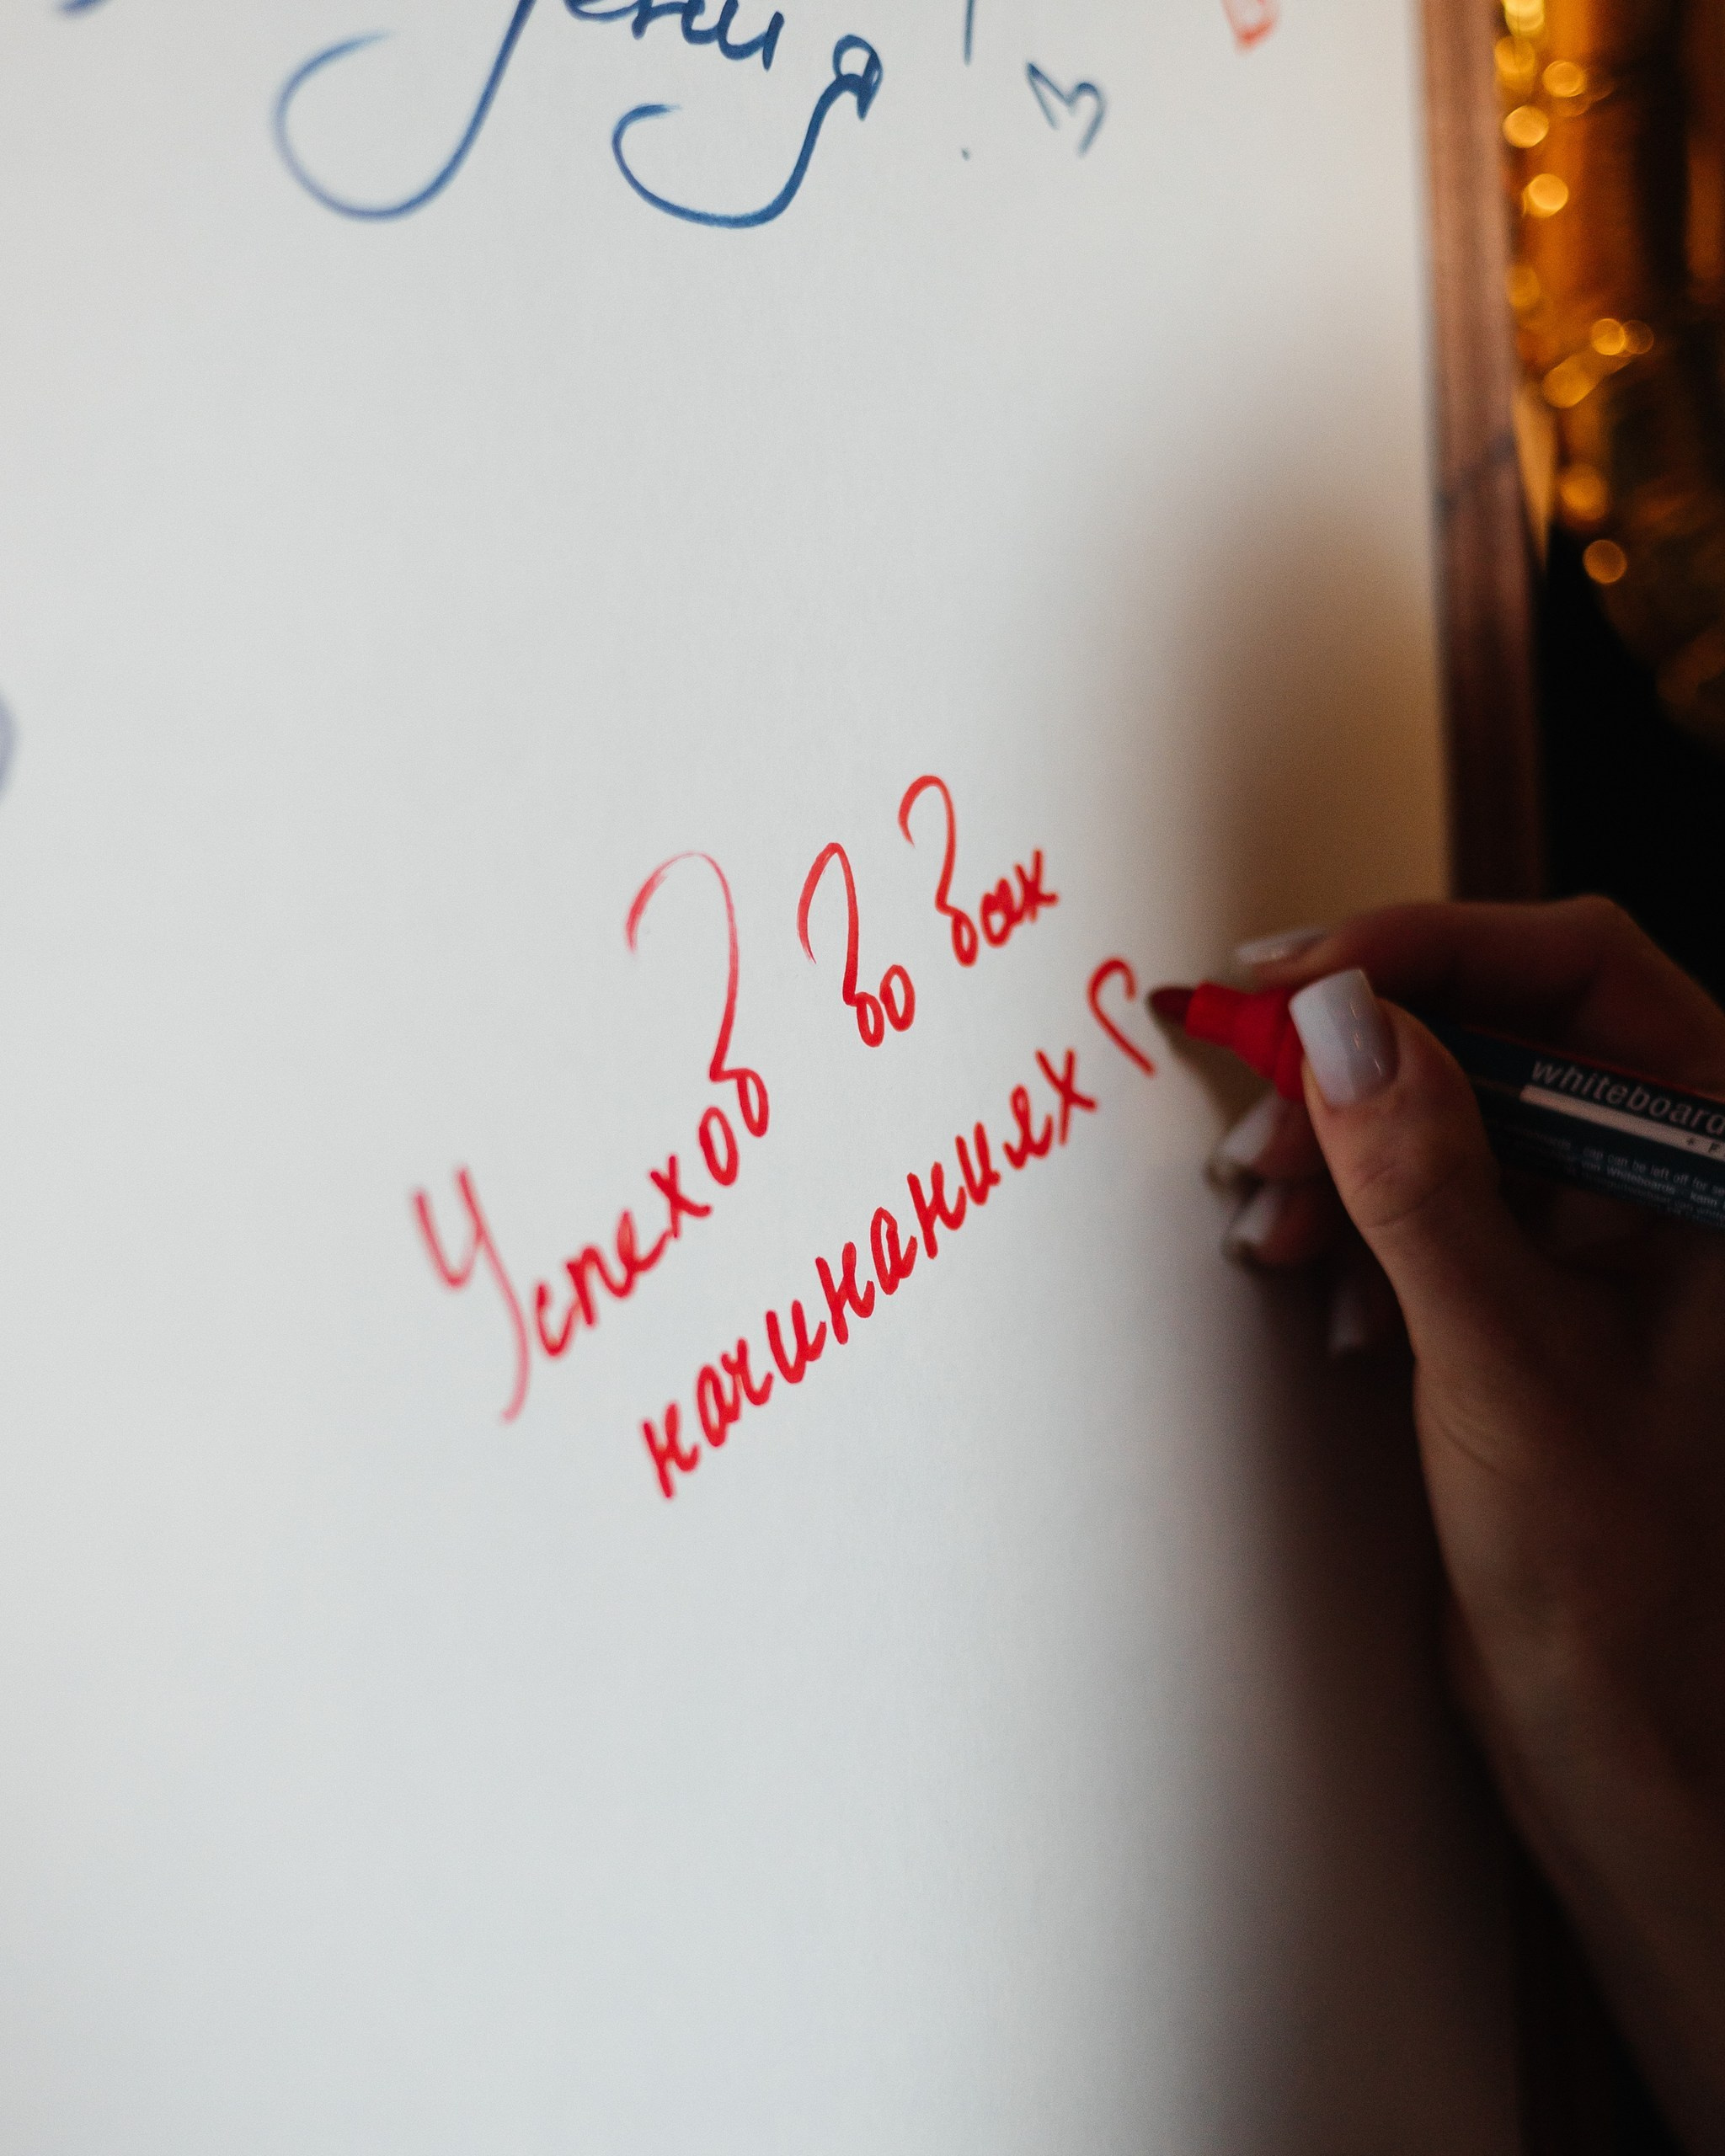 Успехов во всех
начинаниях
whiteboard